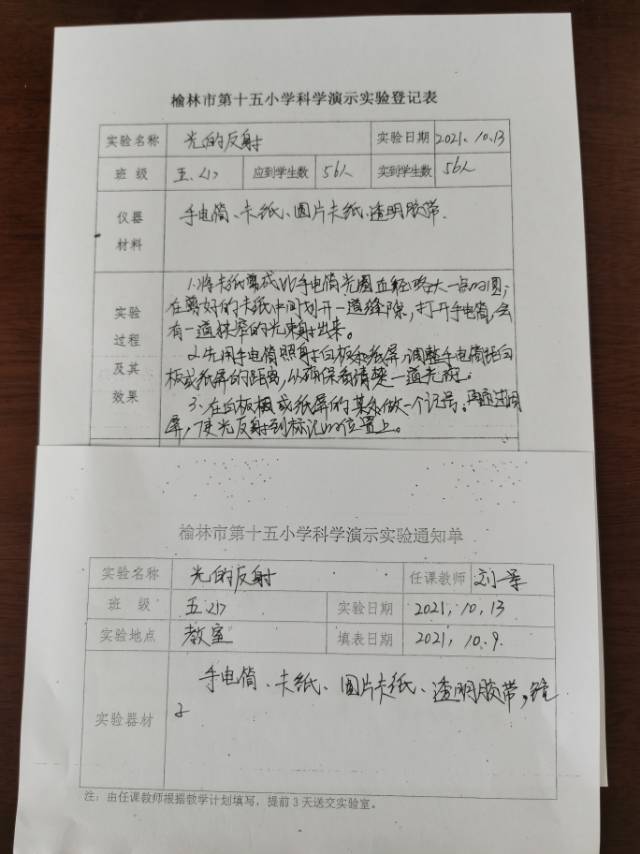 榆林市第十五小学科学演示实验登记表
实验名称 光的反射 实验日期 2021.10.13
班 级 五.(1) 应到学生数 56人 实到学生数 56人
仪器材料 手电筒、卡纸、图片卡纸、透明胶带.
实验过程及其效果
1.将卡纸剪成比手电筒光圈直径略大一点的圆;
在剪好的卡纸中间划开一道缝隙,打开手电筒,会
有一道狭窄的光束射出来。
2.先用手电筒照射白板和纸屏,调整手电筒距白
板或纸屏的距离,以确保看清楚一道光斑;
3.在白板或纸屏的某处做一个记号。再通过
屏,使光反射到标记的位置上。
榆林市第十五小学科学演示实验通知单
实验名称 光的反射 任课教师 刘
班 级 五(1) 实验日期 2021.10.13
实验地点 教室 填表日期 2021.10.9.
实验器材 手电筒、卡纸、图片卡纸、透明胶带,
注:由任课教师根据教学计划填写,提前3天送交实验室。